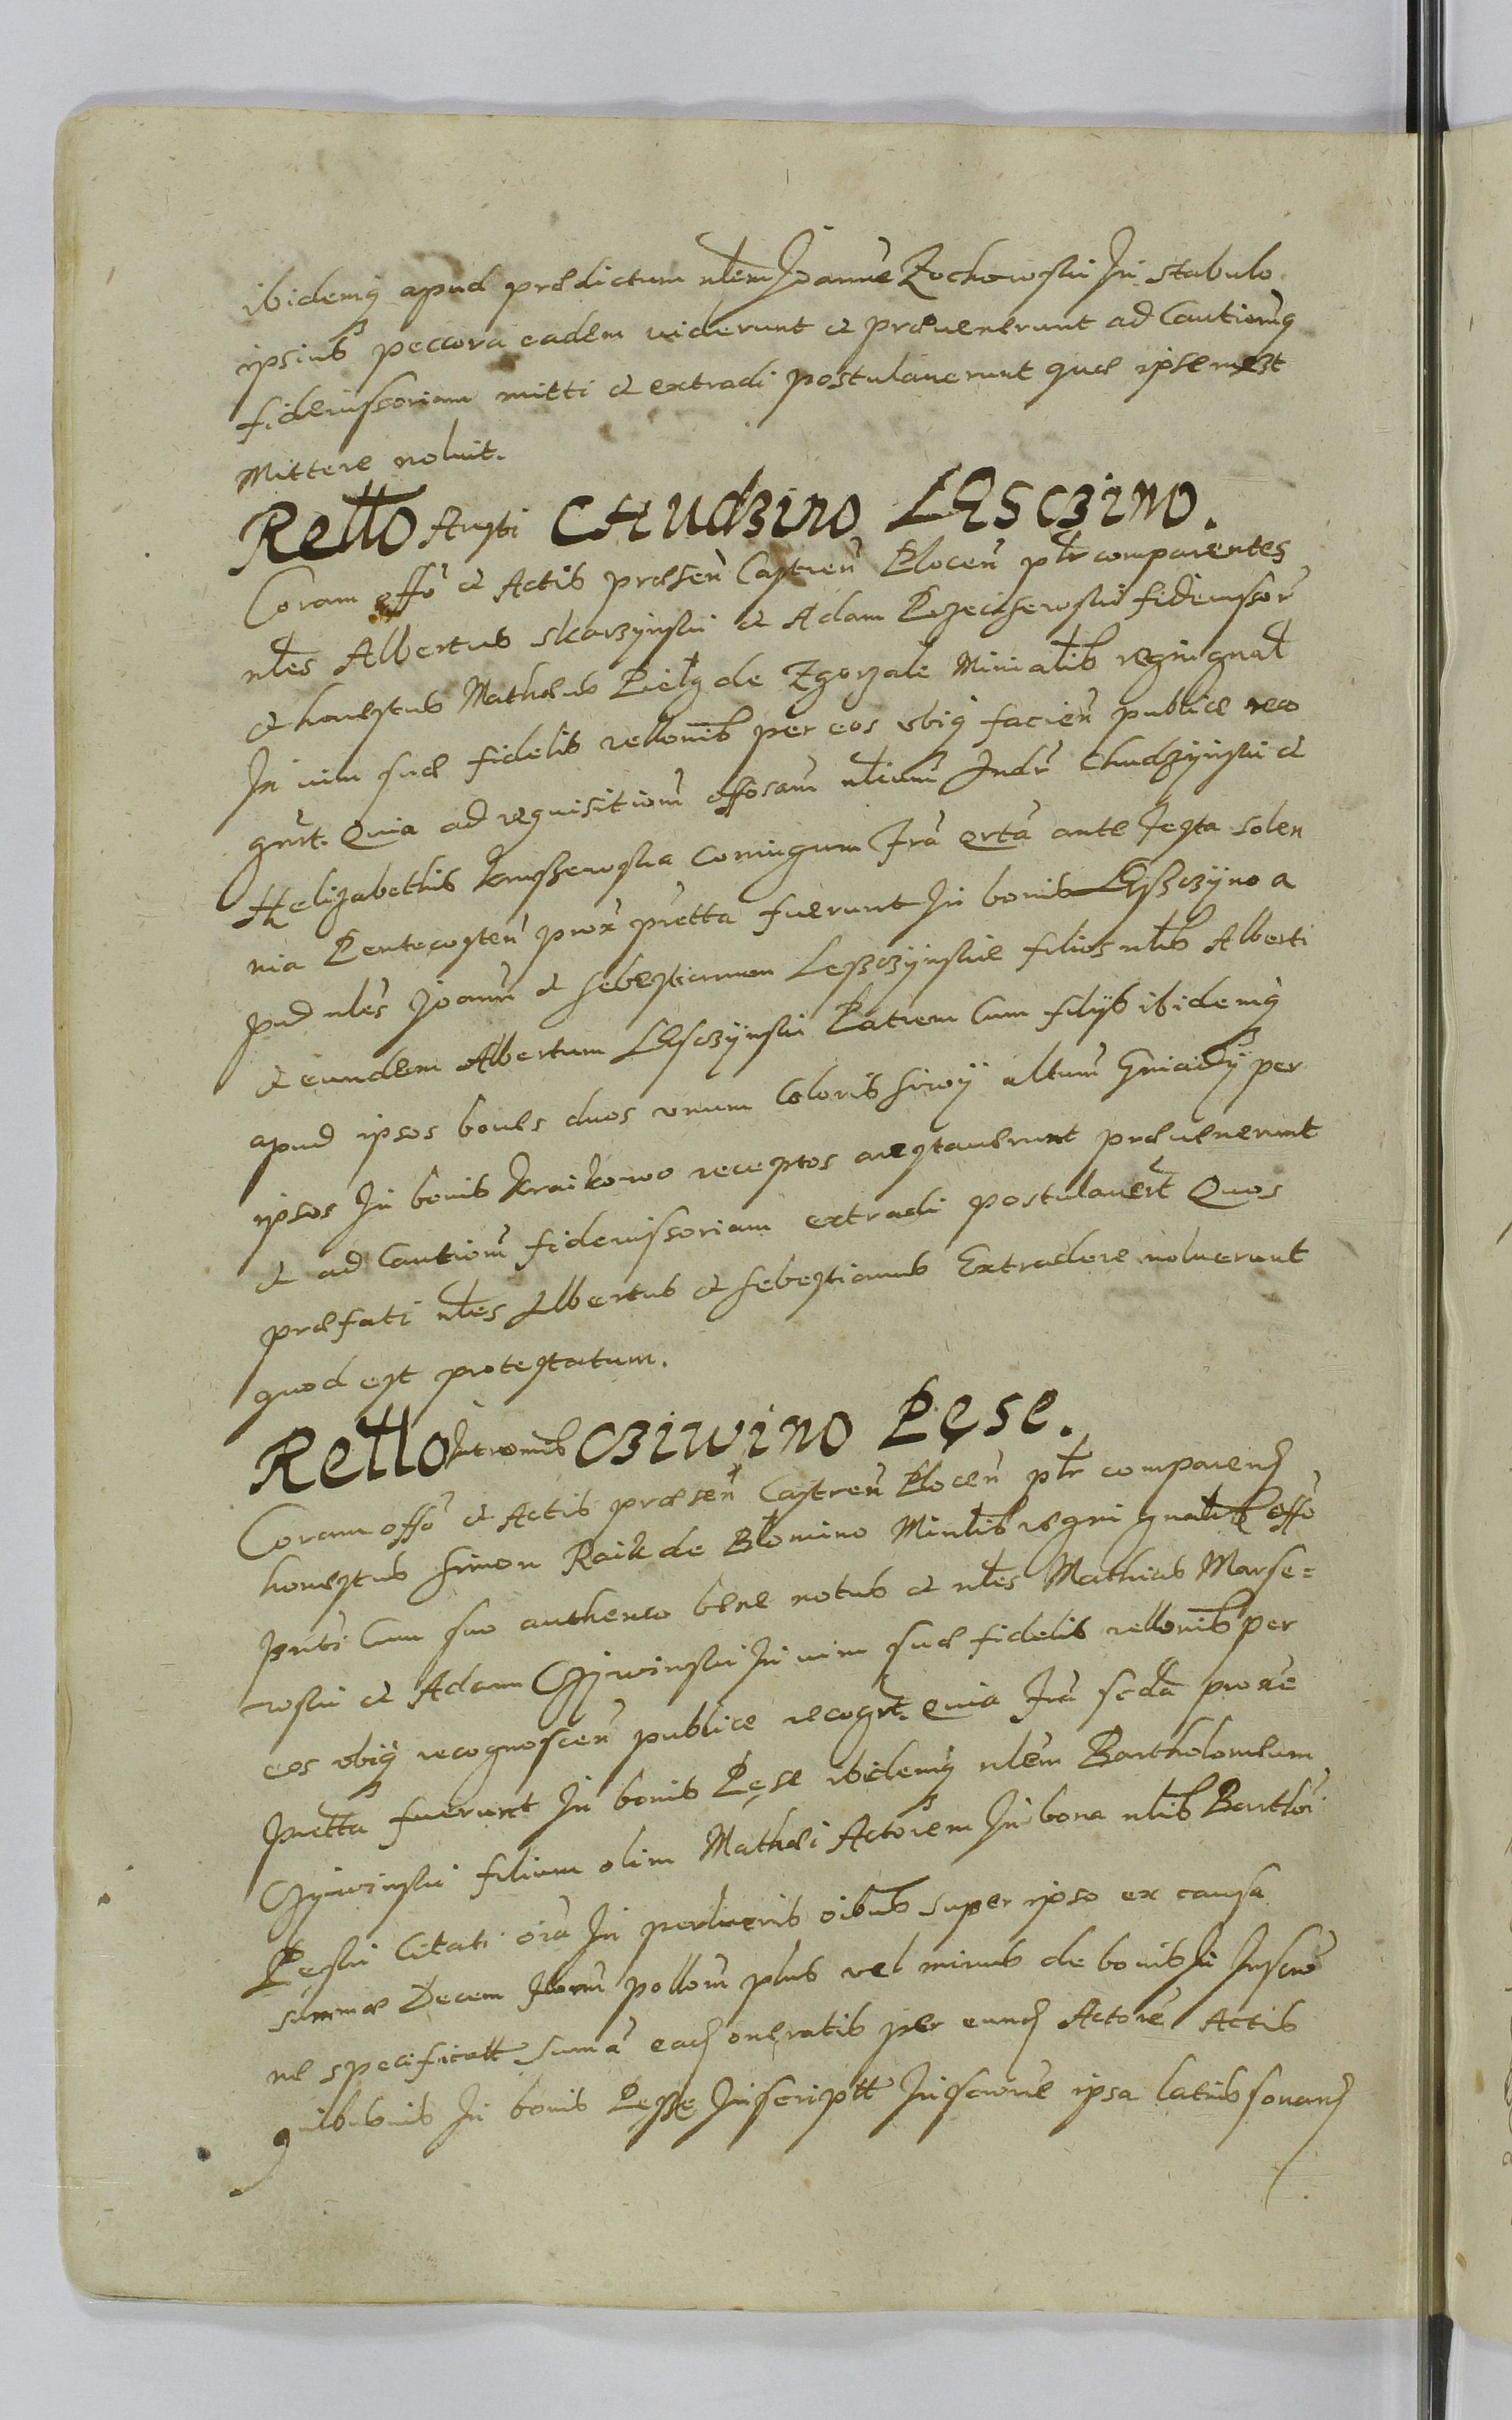 ibidemq apud prædictum nlem Joanne Zochowski In stabulo
ipsius peccora eadem viderunt et prævenerunt ad Cautionq
fideiussoriam mitti et extradi postulaverunt quæ ipsemet
Mittere noluit.
Rello Aresti CHudzino LEsczino.
Coram offo et Actis præsen Castren Plocen plr comparentes
nles Albertus Skarzynski et Adam fideiussor
et honestus Mathæus de Zgorzale Mini alis regni gnal
In vim suæ fidelis rellonis per eos vbiq facien publice reco
gnrt. Quia ad requisitiom offosam nlium Chudzynski et
Helizabethis Coniugum fra qrta ante festa solen
nia Pentecosten prox pretta fuerunt In bonis Leszczyno a
pud nles Joann et Sebestianum Leszczynskie filios nlis Alberti
et eundem Albertum LEsczynski Patrem Cum filys ibidemq
apud ipsos boves duos vnum Coloris siwy altum Gniady per
ipsos In bonis Kraikowo receptos arestaverunt prævenerunt
et ad Cautiom fideiussoriam extradi postulavert Quos
præfati nles Albertus et Sebestianus Extradere noluerunt
quod est protestatum.
Rello Intromis Cziwino Pęse.
Coram offo et Actis præsen Castren Plocen plr comparen
honestus Simon Raik de Blomino Minlis regni gnalis offo
pnti Cum suo authenco bene notus et nles Mathias Marse=
wski et Adam Czywinski In vim suæ fidelis rellonis per
eos vbiq recognoscen publice recogrt. Quia fra scda proxe
pretta fuerunt In bonis Pęse ibidemq nlem Bartholomeum
Czywinski filium olim Mathæi Actorem In bona nlis Barthol
Pęski Citati oia In oibus super ipso ex causa
summæ Decem florm pollom plus vel minus de bonis In Inscro
ne specificatt Suma ead oneratis per eund Actore Actis
In bonis Pęsse Inscriptt Inscrone ipsa latius sonan